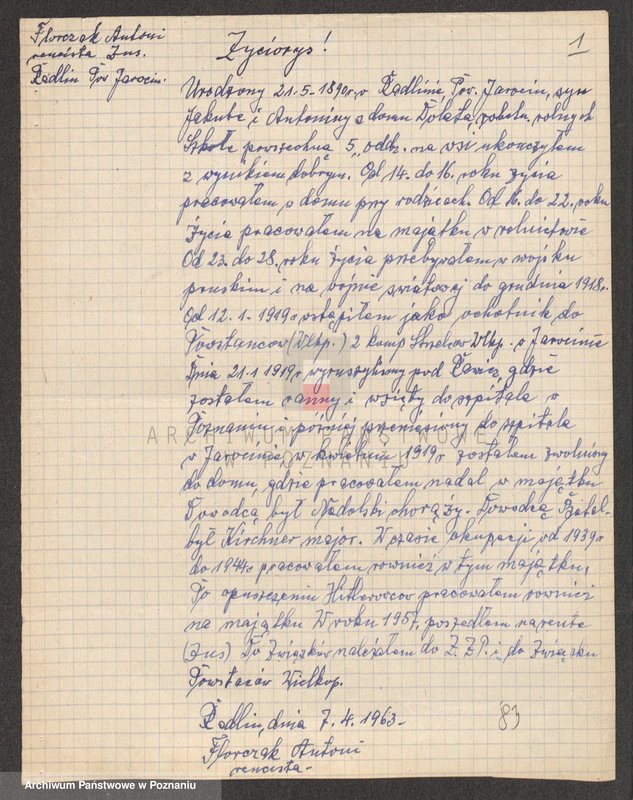 Florczak Antoni
rencista Zus.
Radlin Pow Jarocin.
1
Życiorys!
Urodzony 21.5.1890r. w Radlinie, Pow. Jarocin, syn
Jakuba i Antoniny z domu Dolata, robotn. rolnych
Szkołe powszechną 5 oddz. na wsi ukończyłem
z wynikiem dobrym. Od 14. do 16. roku życia
pracowałem w domu przy rodzicach. Od 16. do 22. roku
życia pracowałem na majątku w rolnictwie
Od 23. do 28. roku życia przebywałem w wojsku
pruskim i na wojnie światowej do grudnia 1918r.
Od 12.1-1919r wstąpiłem jako ochotnik do
Powstańców (Wlkp.) 2 komp Strzelców Wlkp. w Jarocinie
Dnia 21.1 1919r wyruszyliśmy pod Rawicz gdzie
zostałem ranny i wzięty do szpitala w
Poznaniu i później przeniesiony do szpitala
ARCHIWUM PAŃSTWOWE
W POZNANIU
w Jarocinie w kwietniu 1919r zostałem zwolniony
do domu, gdzie pracowałem nadal w majątku
Dowodcą był Nadolski chorąży. Dowodcą
był Kirchner major. W czasie okupacji od 1939r
do 1944r pracowałem rownież w tym majątku,
Po opuszczeniu Hitlerowcow pracowałem rownież
na majątku W roku 1957. poszedłem na rente
(Zus) Do Związków należałem do Z.Z.P. i do Związku
Powstańców Wielkop.
Radlin, dnia 7.4.1963-
83
Florczak Antoni
rencista-
Archiwum Państwowe w Poznaniu